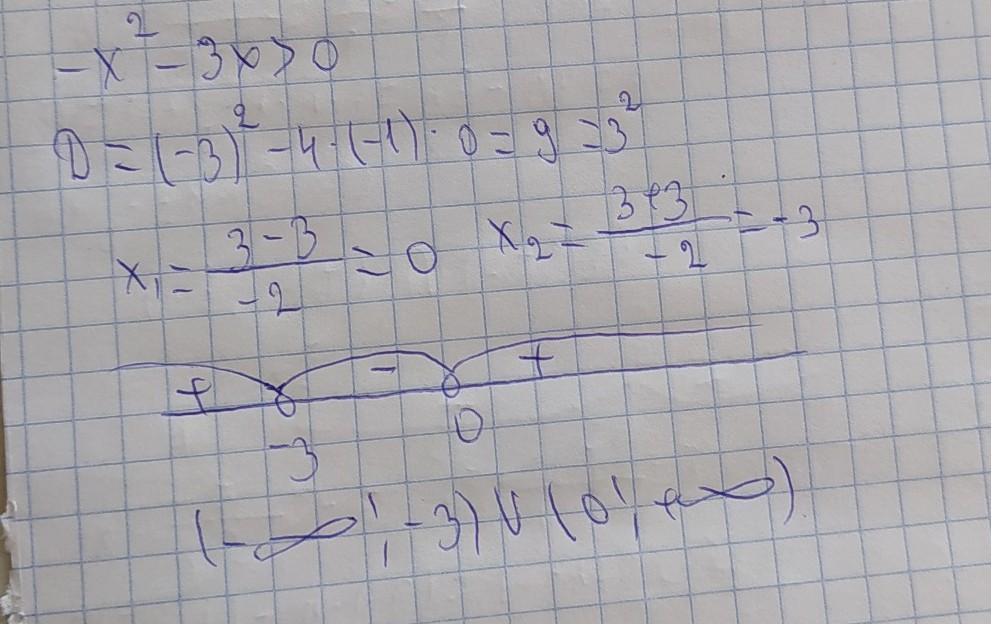 -x² - 3x > 0
D = (-3)² - 4·(-1)·0 = 9 = 3²
x₁ = (3-3)/(-2) = 0   x₂ = (3+3)/(-2) = -3
+ - +
-3 0
(-∞; -3) ∪ (0; +∞)